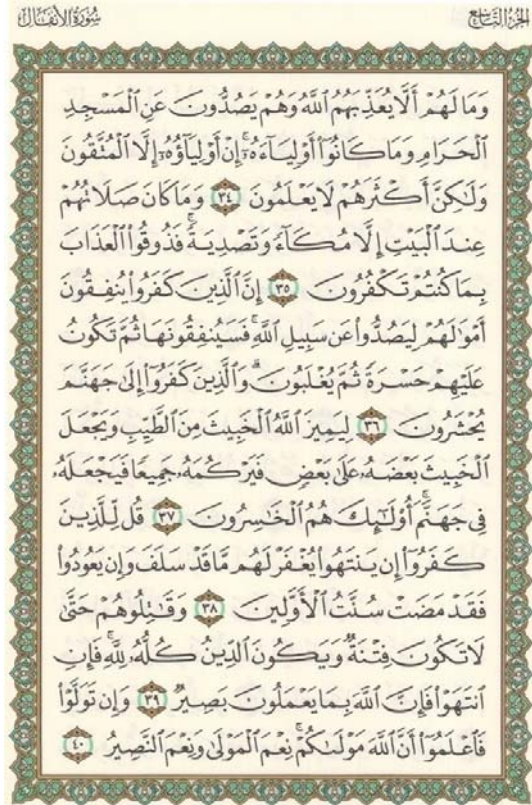 سُورَةُ الأَنفَالِ
الجُزْءُ التَّاسِعُ
وَمَا لَهُمْ أَلَّا يُعَذِّبَهُمُ ٱللَّهُ وَهُمْ يَصُدُّونَ عَنِ ٱلْمَسْجِدِ
ٱلْحَرَامِ وَمَا كَانُوٓا۟ أَوْلِيَآءَهُۥٓ ۚ إِنْ أَوْلِيَآؤُهُۥٓ إِلَّا ٱلْمُتَّقُونَ
وَلَٰكِنَّ أَكْثَرَهُمْ لَا يَعْلَمُونَ ٣٤ وَمَا كَانَ صَلَاتُهُمْ
عِندَ ٱلْبَيْتِ إِلَّا مُكَآءً وَتَصْدِيَةً ۚ فَذُوقُوا۟ ٱلْعَذَابَ
بِمَا كُنتُمْ تَكْفُرُونَ ٣٥ إِنَّ ٱلَّذِينَ كَفَرُوا۟ يُنفِقُونَ
أَمْوَٰلَهُمْ لِيَصُدُّوا۟ عَن سَبِيلِ ٱللَّهِ ۚ فَسَيُنفِقُونَهَا ثُمَّ تَكُونُ
عَلَيْهِمْ حَسْرَةً ثُمَّ يُغْلَبُونَ ۗ وَٱلَّذِينَ كَفَرُوٓا۟ إِلَىٰ جَهَنَّمَ
يُحْشَرُونَ ٣٦ لِيَمِيزَ ٱللَّهُ ٱلْخَبِيثَ مِنَ ٱلطَّيِّبِ وَيَجْعَلَ
ٱلْخَبِيثَ بَعْضَهُۥ عَلَىٰ بَعْضٍ فَيَرْكُمَهُۥ جَمِيعًا فَيَجْعَلَهُۥ
فِى جَهَنَّمَ ۚ أُو۟لَٰٓئِكَ هُمُ ٱلْخَٰسِرُونَ ٣٧ قُل لِّلَّذِينَ
كَفَرُوٓا۟ إِن يَنتَهُوا۟ يُغْفَرْ لَهُم مَّا قَدْ سَلَفَ وَإِن يَعُودُوا۟
فَقَدْ مَضَتْ سُنَّتُ ٱلْأَوَّلِينَ ٣٨ وَقَٰتِلُوهُمْ حَتَّىٰ
لَا تَكُونَ فِتْنَةٌ وَيَكُونَ ٱلدِّينُ كُلُّهُۥ لِلَّهِ ۚ فَإِنِ
ٱنتَهَوْا۟ فَإِنَّ ٱللَّهَ بِمَا يَعْمَلُونَ بَصِيرٌ ٣٩ وَإِن تَوَلَّوْا۟
فَٱعْلَمُوٓا۟ أَنَّ ٱللَّهَ مَوْلَىٰكُمْ ۚ نِعْمَ ٱلْمَوْلَىٰ وَنِعْمَ ٱلنَّصِيرُ ٤٠